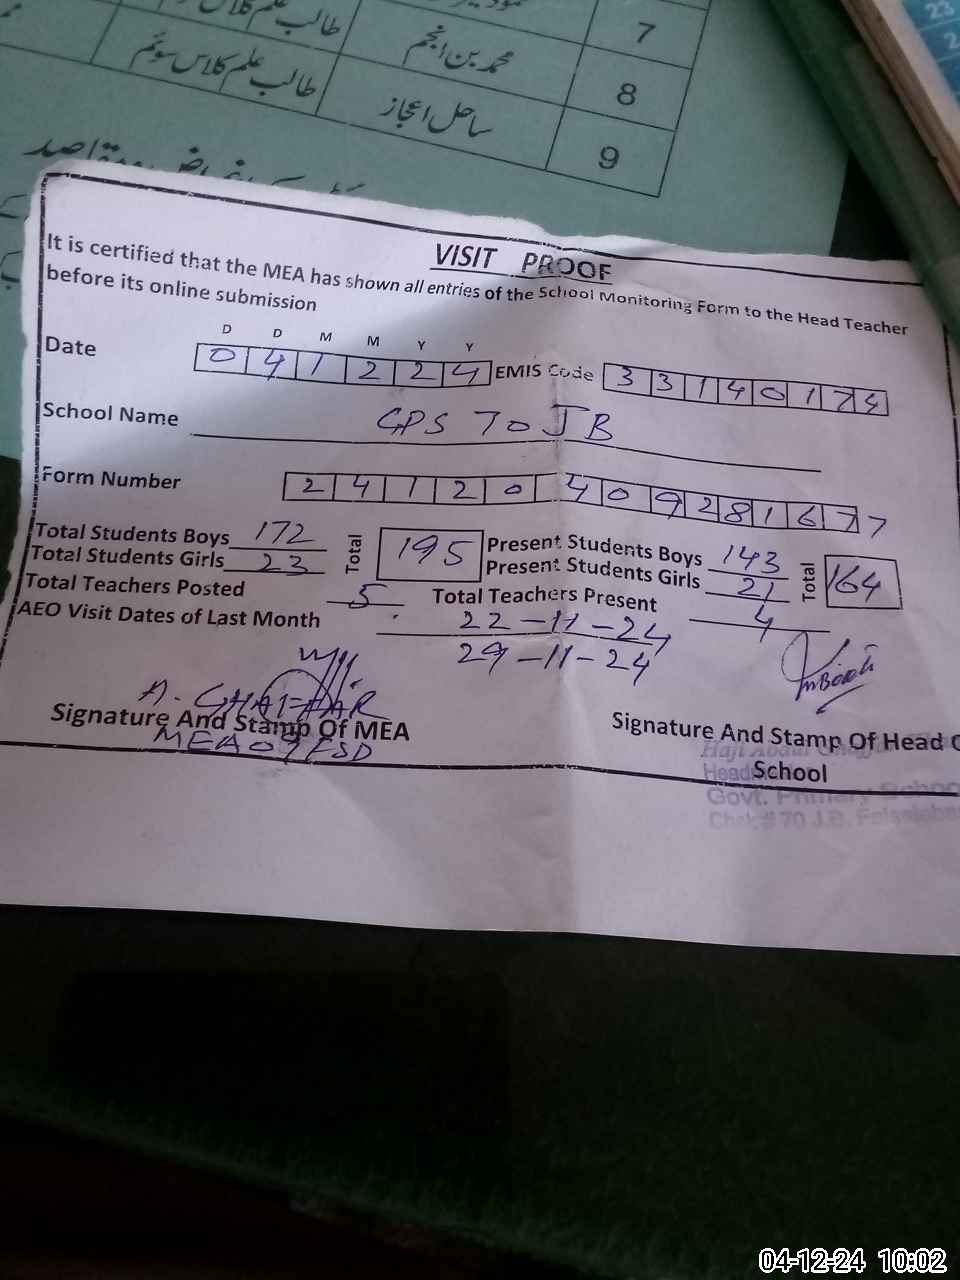 7
طالب علم کلاس
8 محمد بن انجم طالب علم کلاس سوئم
9 ساحل اعجاز
VISIT PROOF
It is certified that the MEA has shown all entries of the School Monitoring Form to the Head Teacher
before its online submission
D D M M Y Y
Date 0 4 1 2 2 4 EMIS Code 3 3 1 4 0 1 7 4
School Name GPS 70 JB
Form Number 2 4 1 2 0 4 0 9 2 8 1 6 7 7
Total Students Boys 172 Total 195 Present Students Boys 143 Total 164
Total Students Girls 23 Present Students Girls 21
Total Teachers Posted 5 Total Teachers Present 4
AEO Visit Dates of Last Month 22-11-24
29-11-24
A. GHAFFAR
Signature And Stamp Of MEA Signature And Stamp Of Head O
MEA 07 FSD School
Haji Abdul
Govt. Primary Schoo
Chak # 70 J.B. Faisalaba
23
2
04-12-24 10:02